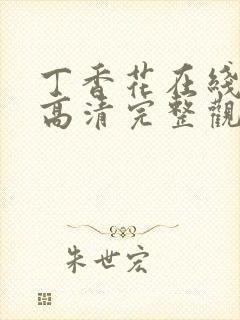 丁香花在綫
高清完整觀
朱世宏